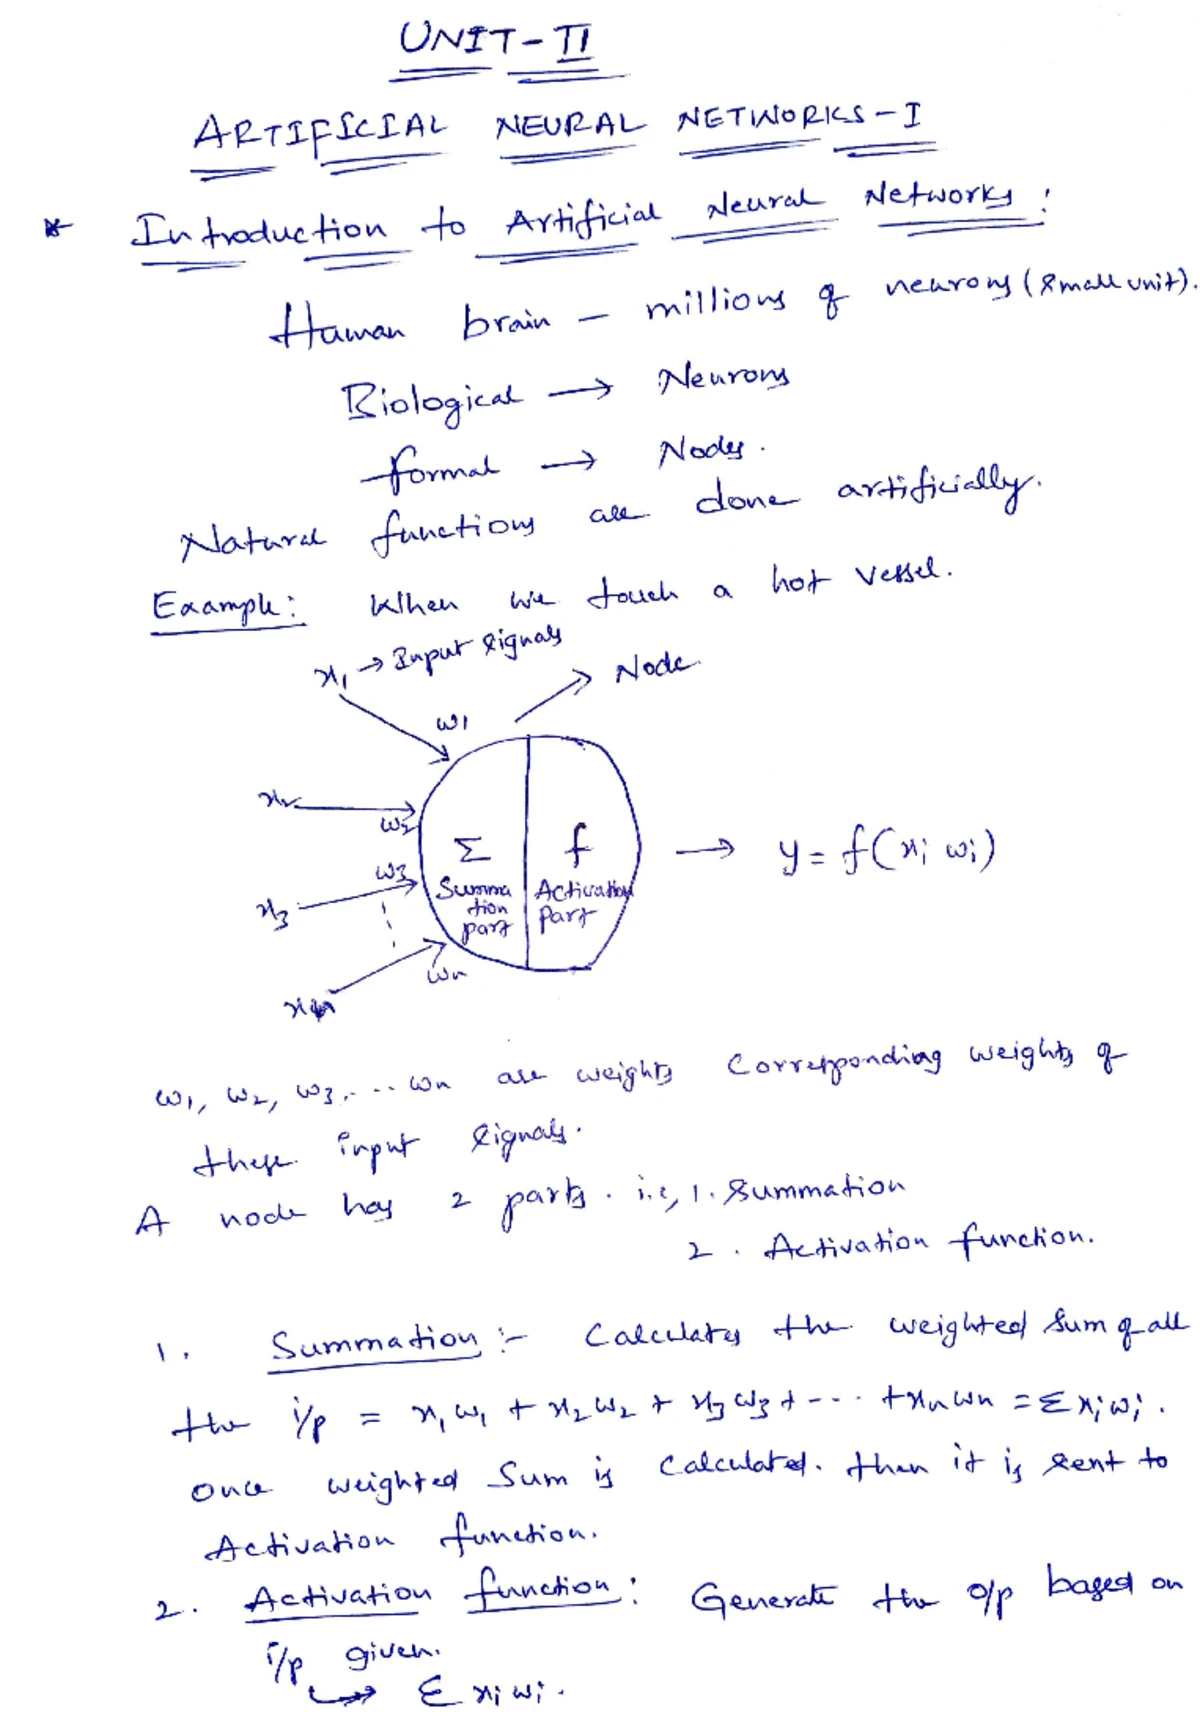 UNIT-II
ARTIFICIAL NEURAL NETWORKS-I
* Introduction to Artificial Neural Networks:
Human brain - millions of neurons (small unit).
Biological → Neurons
formal → Nodes.
Natural functions are done artificially.
Example: When we touch a hot vessel.
x1 → Input signals
Node
w1
x2
w2
w3
x3
Σ
f
→ y = f(xi wi)
Summation part
Activation part
wn
xn
w1, w2, w3, ... wn are weights corresponding weights of
these input signals.
A node has 2 parts. i.e, 1. Summation
2. Activation function.
1. Summation :- Calculates the weighted sum of all
the i/p = x1w1 + x2w2 + x3w3 + --- + xnwn = Σxiwi.
once weighted sum is calculated. then it is sent to
Activation function.
2. Activation function: Generate the o/p based on
i/p given.
↳ Σ xiwi.